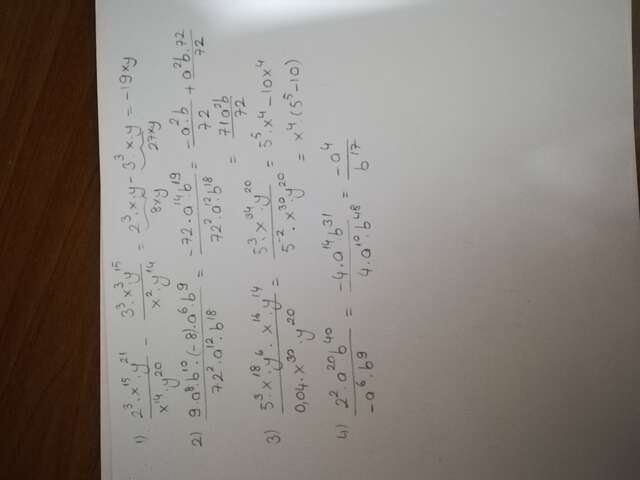 1) 2³·x¹⁵·y²¹ / x¹⁴·y²⁰ - 3³·x³·y¹⁵ / x²·y¹⁴ = 2³·x·y - 3³·x·y = -19xy
8xy 27xy
2) 9·a⁸·b¹⁰·(-8)·a⁶·b⁹ / 72²·a¹²·b¹⁸ = -72·a¹⁴·b¹⁹ / 72²·a¹²·b¹⁸ = -a²·b / 72 + a²b·72 / 72
= 71a²b / 72
3) 5³·x¹⁸·y⁶·x¹⁶·y¹⁴ / 0,04·x³⁰·y²⁰ = 5³·x³⁴·y²⁰ / 5⁻²·x³⁰·y²⁰ = 5⁵·x⁴-10x⁴
= x⁴·(5⁵-10)
4) 2²·a²⁰b⁴⁰ / -a⁶·b⁹ = -4·a¹⁴b³¹ / 4·a¹⁰·b⁴⁸ = -a⁴ / b¹⁷